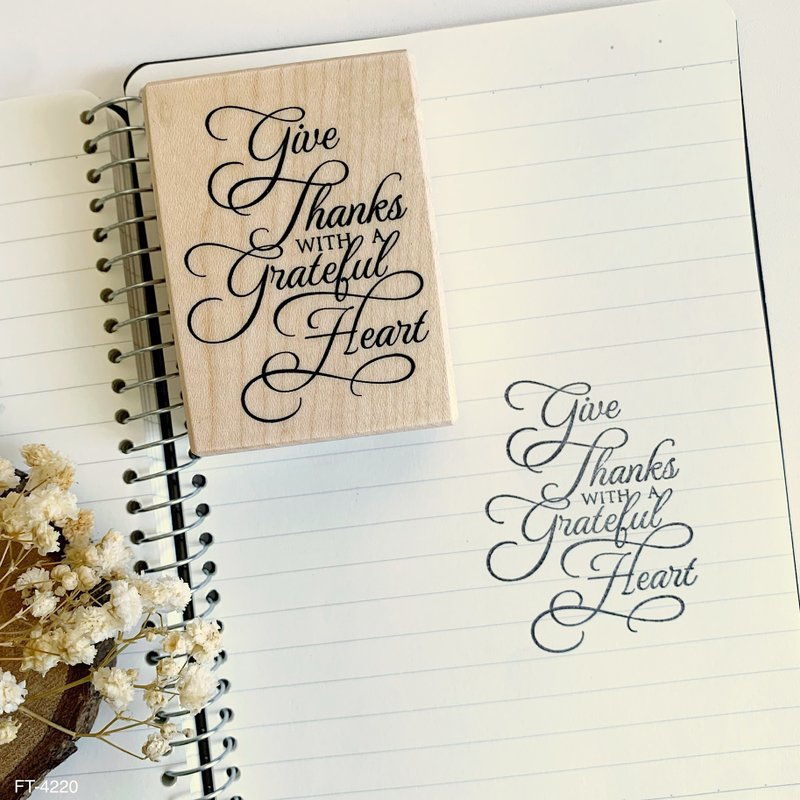 Give
Thanks
WITH A
Grateful
Heart
Give
Thanks
WITH A
Grateful
Heart
FT-4220